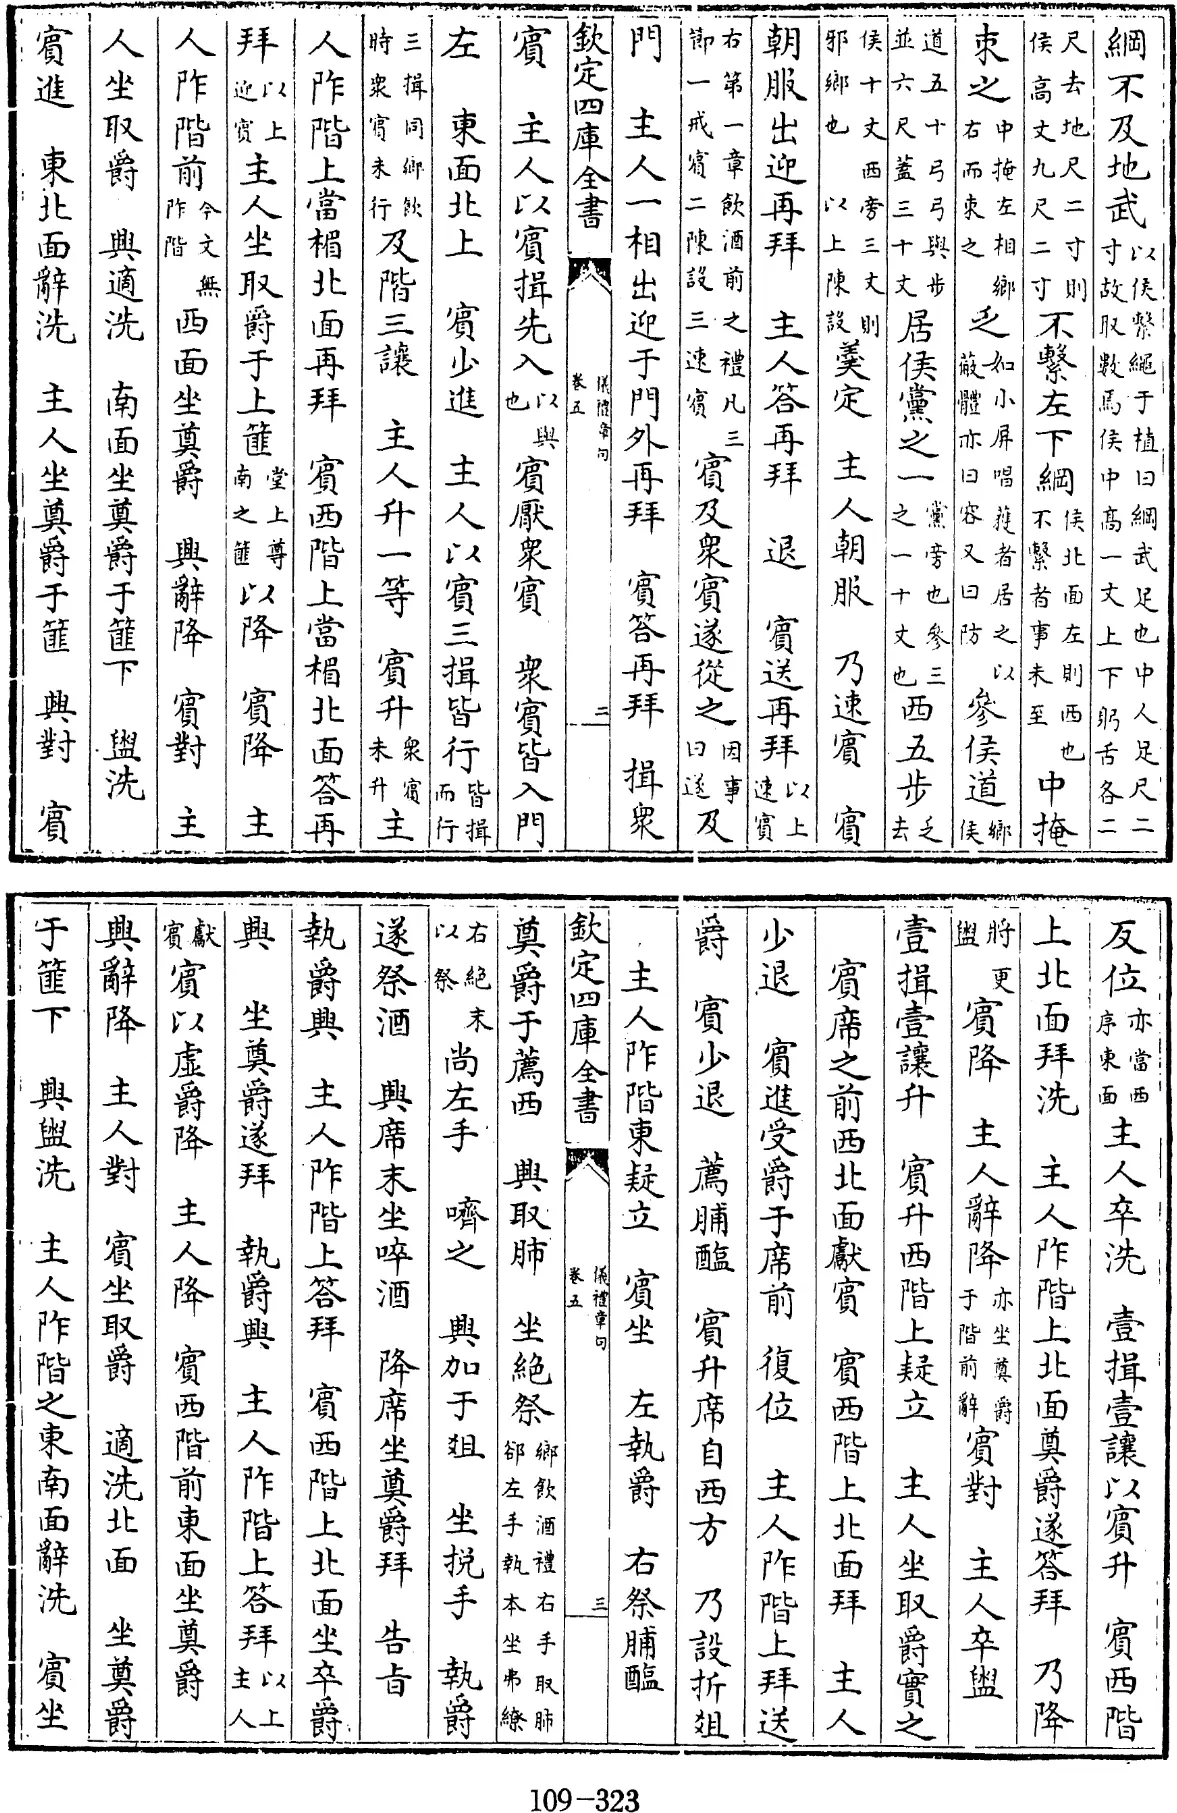 綱不及地武以侯繫繩于植曰綱武足也中人足尺二寸故取數焉侯中高一丈上下躬舌各二
尺去地尺二寸則侯高丈九尺二寸不繫左下綱侯北面左則西也不繫者事未至中掩
束之中掩左相鄉右而束之乏如小屏唱獲者居之以蔽體亦曰容又曰防參侯道鄉侯
道五十弓弓與步並六尺蓋三十丈居侯黨之一黨旁也參三之一十丈也西五步乏去
侯十丈西旁三丈則邪鄉也以上陳設羮定 主人朝服 乃速賓 賓
朝服出迎再拜 主人答再拜 退 賓送再拜以上速賓
右第一章飲酒前之禮凡三節一戒賓二陳設三速賓賓及衆賓遂從之因事曰遂及
門 主人一相出迎于門外再拜 賓答再拜 揖衆
欽定四庫全書 儀禮章句卷五 三
賓 主人以賓揖先入以與也賓厭衆賓 衆賓皆入門
左 東面北上 賓少進 主人以賓三揖皆行皆揖而行
三揖同鄉飲時衆賓未行及階三讓 主人升一等 賓升衆賓未升主
人阼階上當楣北面再拜 賓西階上當楣北面答再
拜以上迎賓主人坐取爵于上篚堂上尊南之篚以降 賓降 主
人阼階前今文無阼階西面坐奠爵 興辭降 賓對 主
人坐取爵 興適洗 南面坐奠爵于篚下 盥洗
賓進 東北面辭洗 主人坐奠爵于篚 興對 賓
反位亦當西序東面主人卒洗 壹揖壹讓以賓升 賓西階
上北面拜洗 主人阼階上北面奠爵遂答拜 乃降
將更盥賓降 主人辭降亦坐奠爵于階前辭賓對 主人卒盥
壹揖壹讓升 賓升西階上疑立 主人坐取爵實之
賓席之前西北面獻賓 賓西階上北面拜 主人
少退 賓進受爵于席前 復位 主人阼階上拜送
爵 賓少退 薦脯醢 賓升席自西方 乃設折俎
主人阼階東疑立 賓坐 左執爵 右祭脯醢
欽定四庫全書 儀禮章句卷五 三
奠爵于薦西 興取肺 坐絕祭鄉飲酒禮右手取肺卻左手執本坐弗繚
右絕末以祭尚左手 嚌之 興加于俎 坐挩手 執爵
遂祭酒 興席末坐啐酒 降席坐奠爵拜 告旨
執爵興 主人阼階上答拜 賓西階上北面坐卒爵
興 坐奠爵遂拜 執爵興 主人阼階上答拜以上主人
獻賓賓以虛爵降 主人降 賓西階前東面坐奠爵
興辭降 主人對 賓坐取爵 適洗北面 坐奠爵
于篚下 興盥洗 主人阼階之東南面辭洗 賓坐
109-323